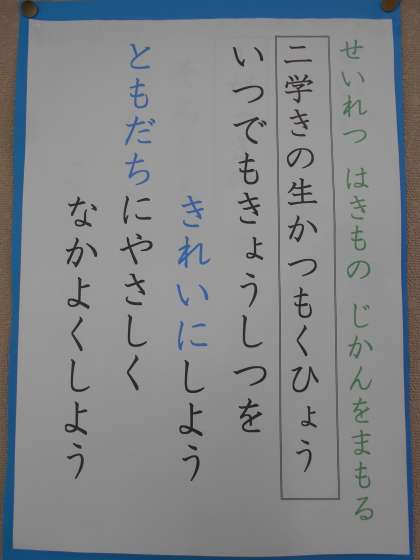 せいれつ はきもの じかんをまもる
二学きの生かつもくひょう
いつでもきょうしつを
きれいにしよう
ともだちにやさしく
なかよくしよう